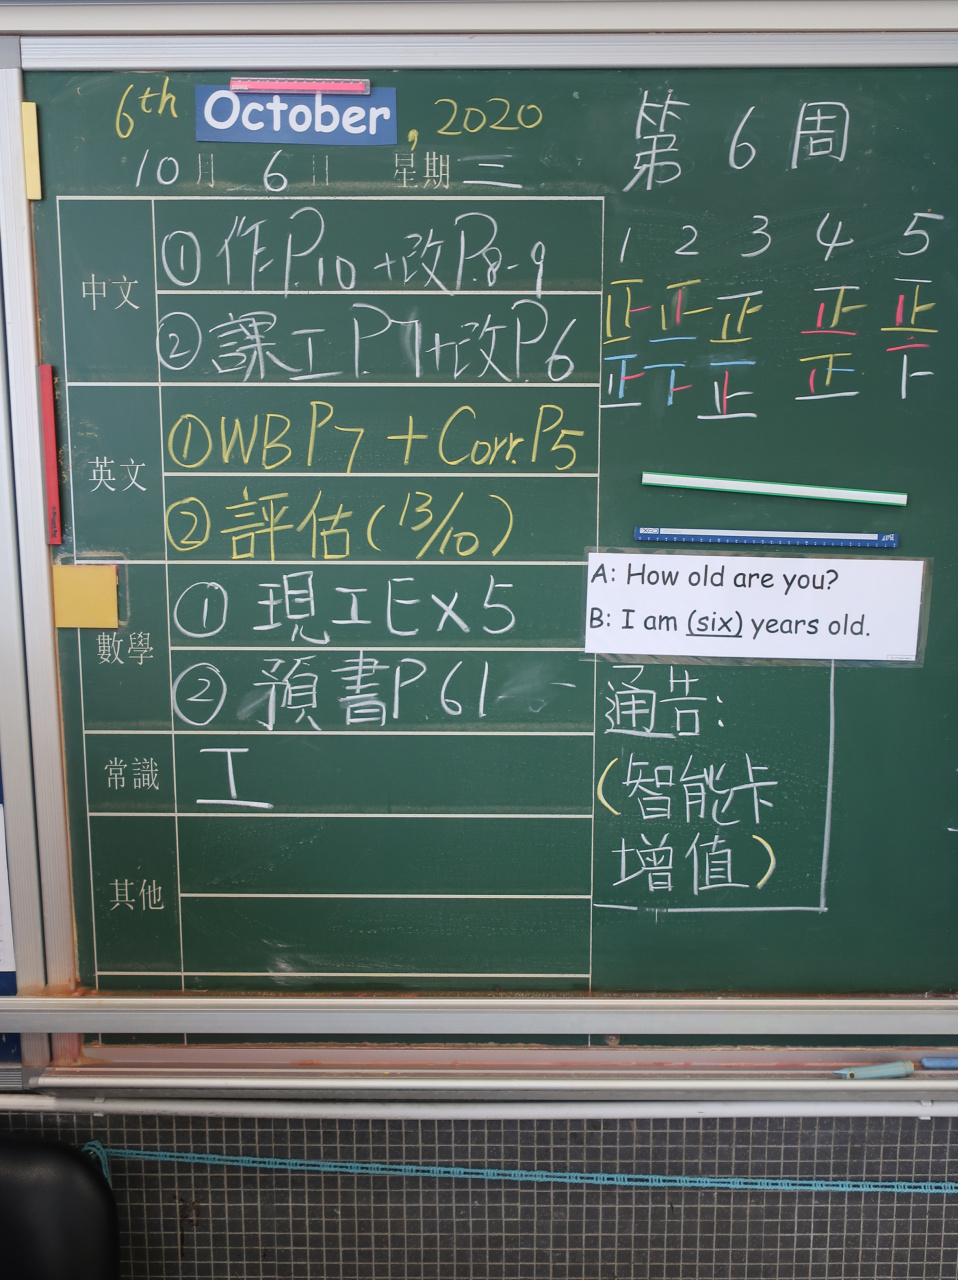 6th October, 2020
10月 6日 星期二
第 6 周
中文
①作P.10+改P.8-9
②課工P.7+改P.6
英文
①WB P7 + Corr. P5
②評估(13/10)
數學
①現工Ex5
②預書P61
常識
工
其他
1 2 3 4 5
正 正 正 正 正
正 下 正 正 下
A: How old are you?
B: I am (six) years old.
通告:
(智能卡
增值)